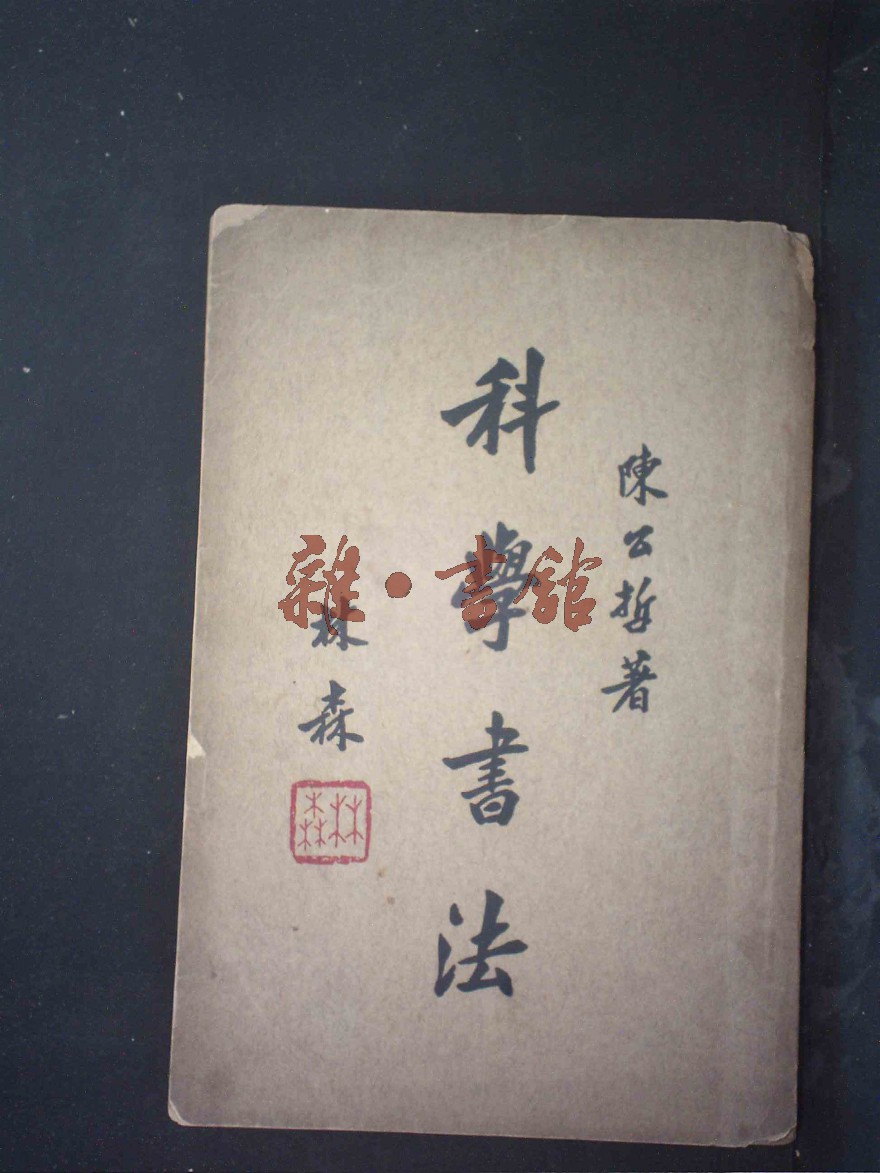 陳公哲著
科學書法
林森
林森
雜·書館